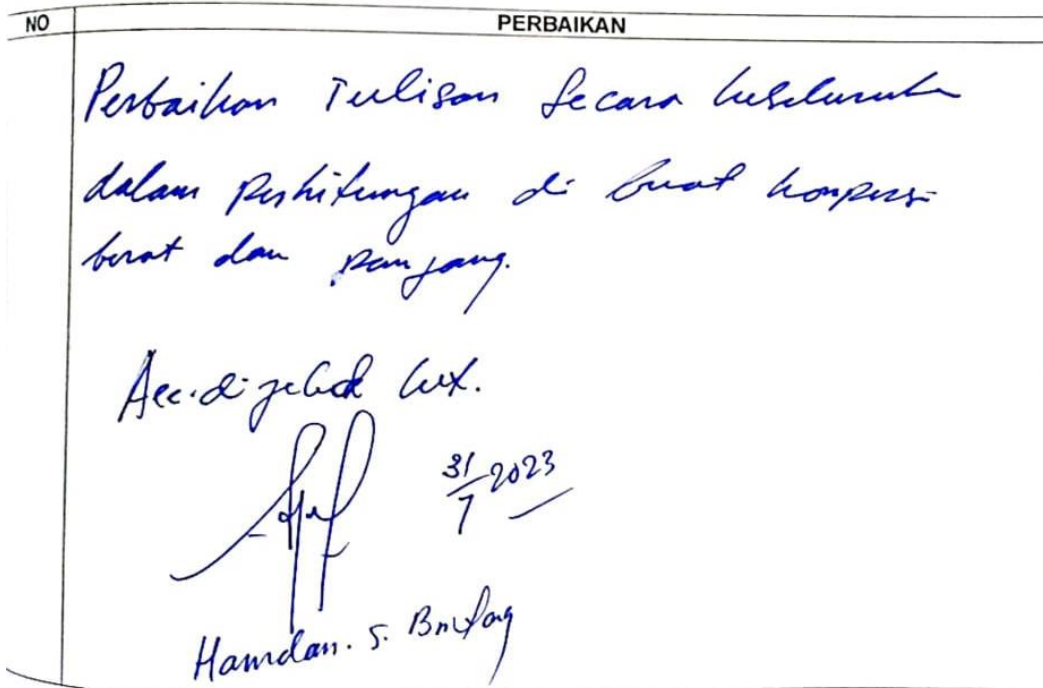 NO PERBAIKAN
Perbaikan Tulisan Secara keseluruha
dalam perhitungan di buat konpersi
berat dan panjang.
Acc. di jelid lux.
31/7 2023
Hamdan. S. Bintang